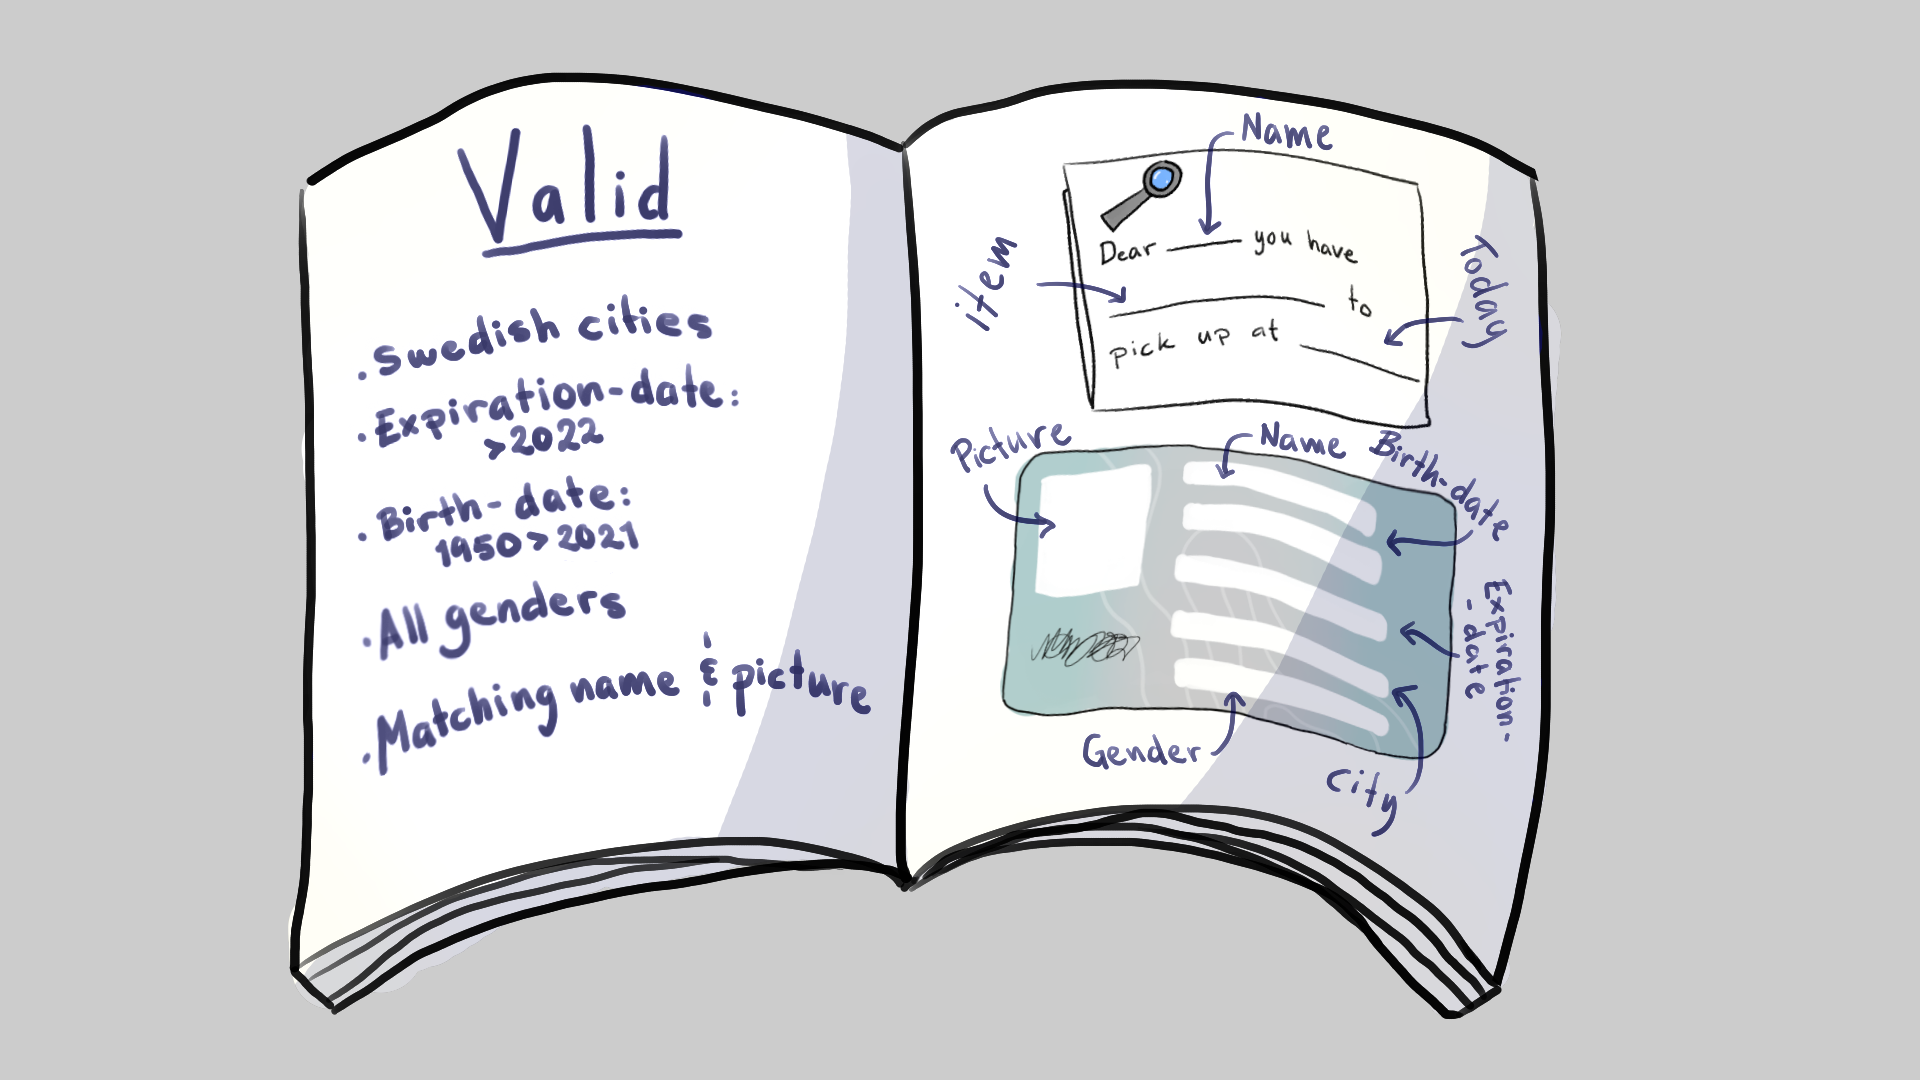 Valid
. Swedish cities
. Expiration-date:
>2022
. Birth-date:
1950>2021
. All genders
. Matching name & picture
Name
item
Today
Dear ____ you have
____ to
pick up at ____
Picture
Name
Birth-date
Expiration-
-date
Gender
City